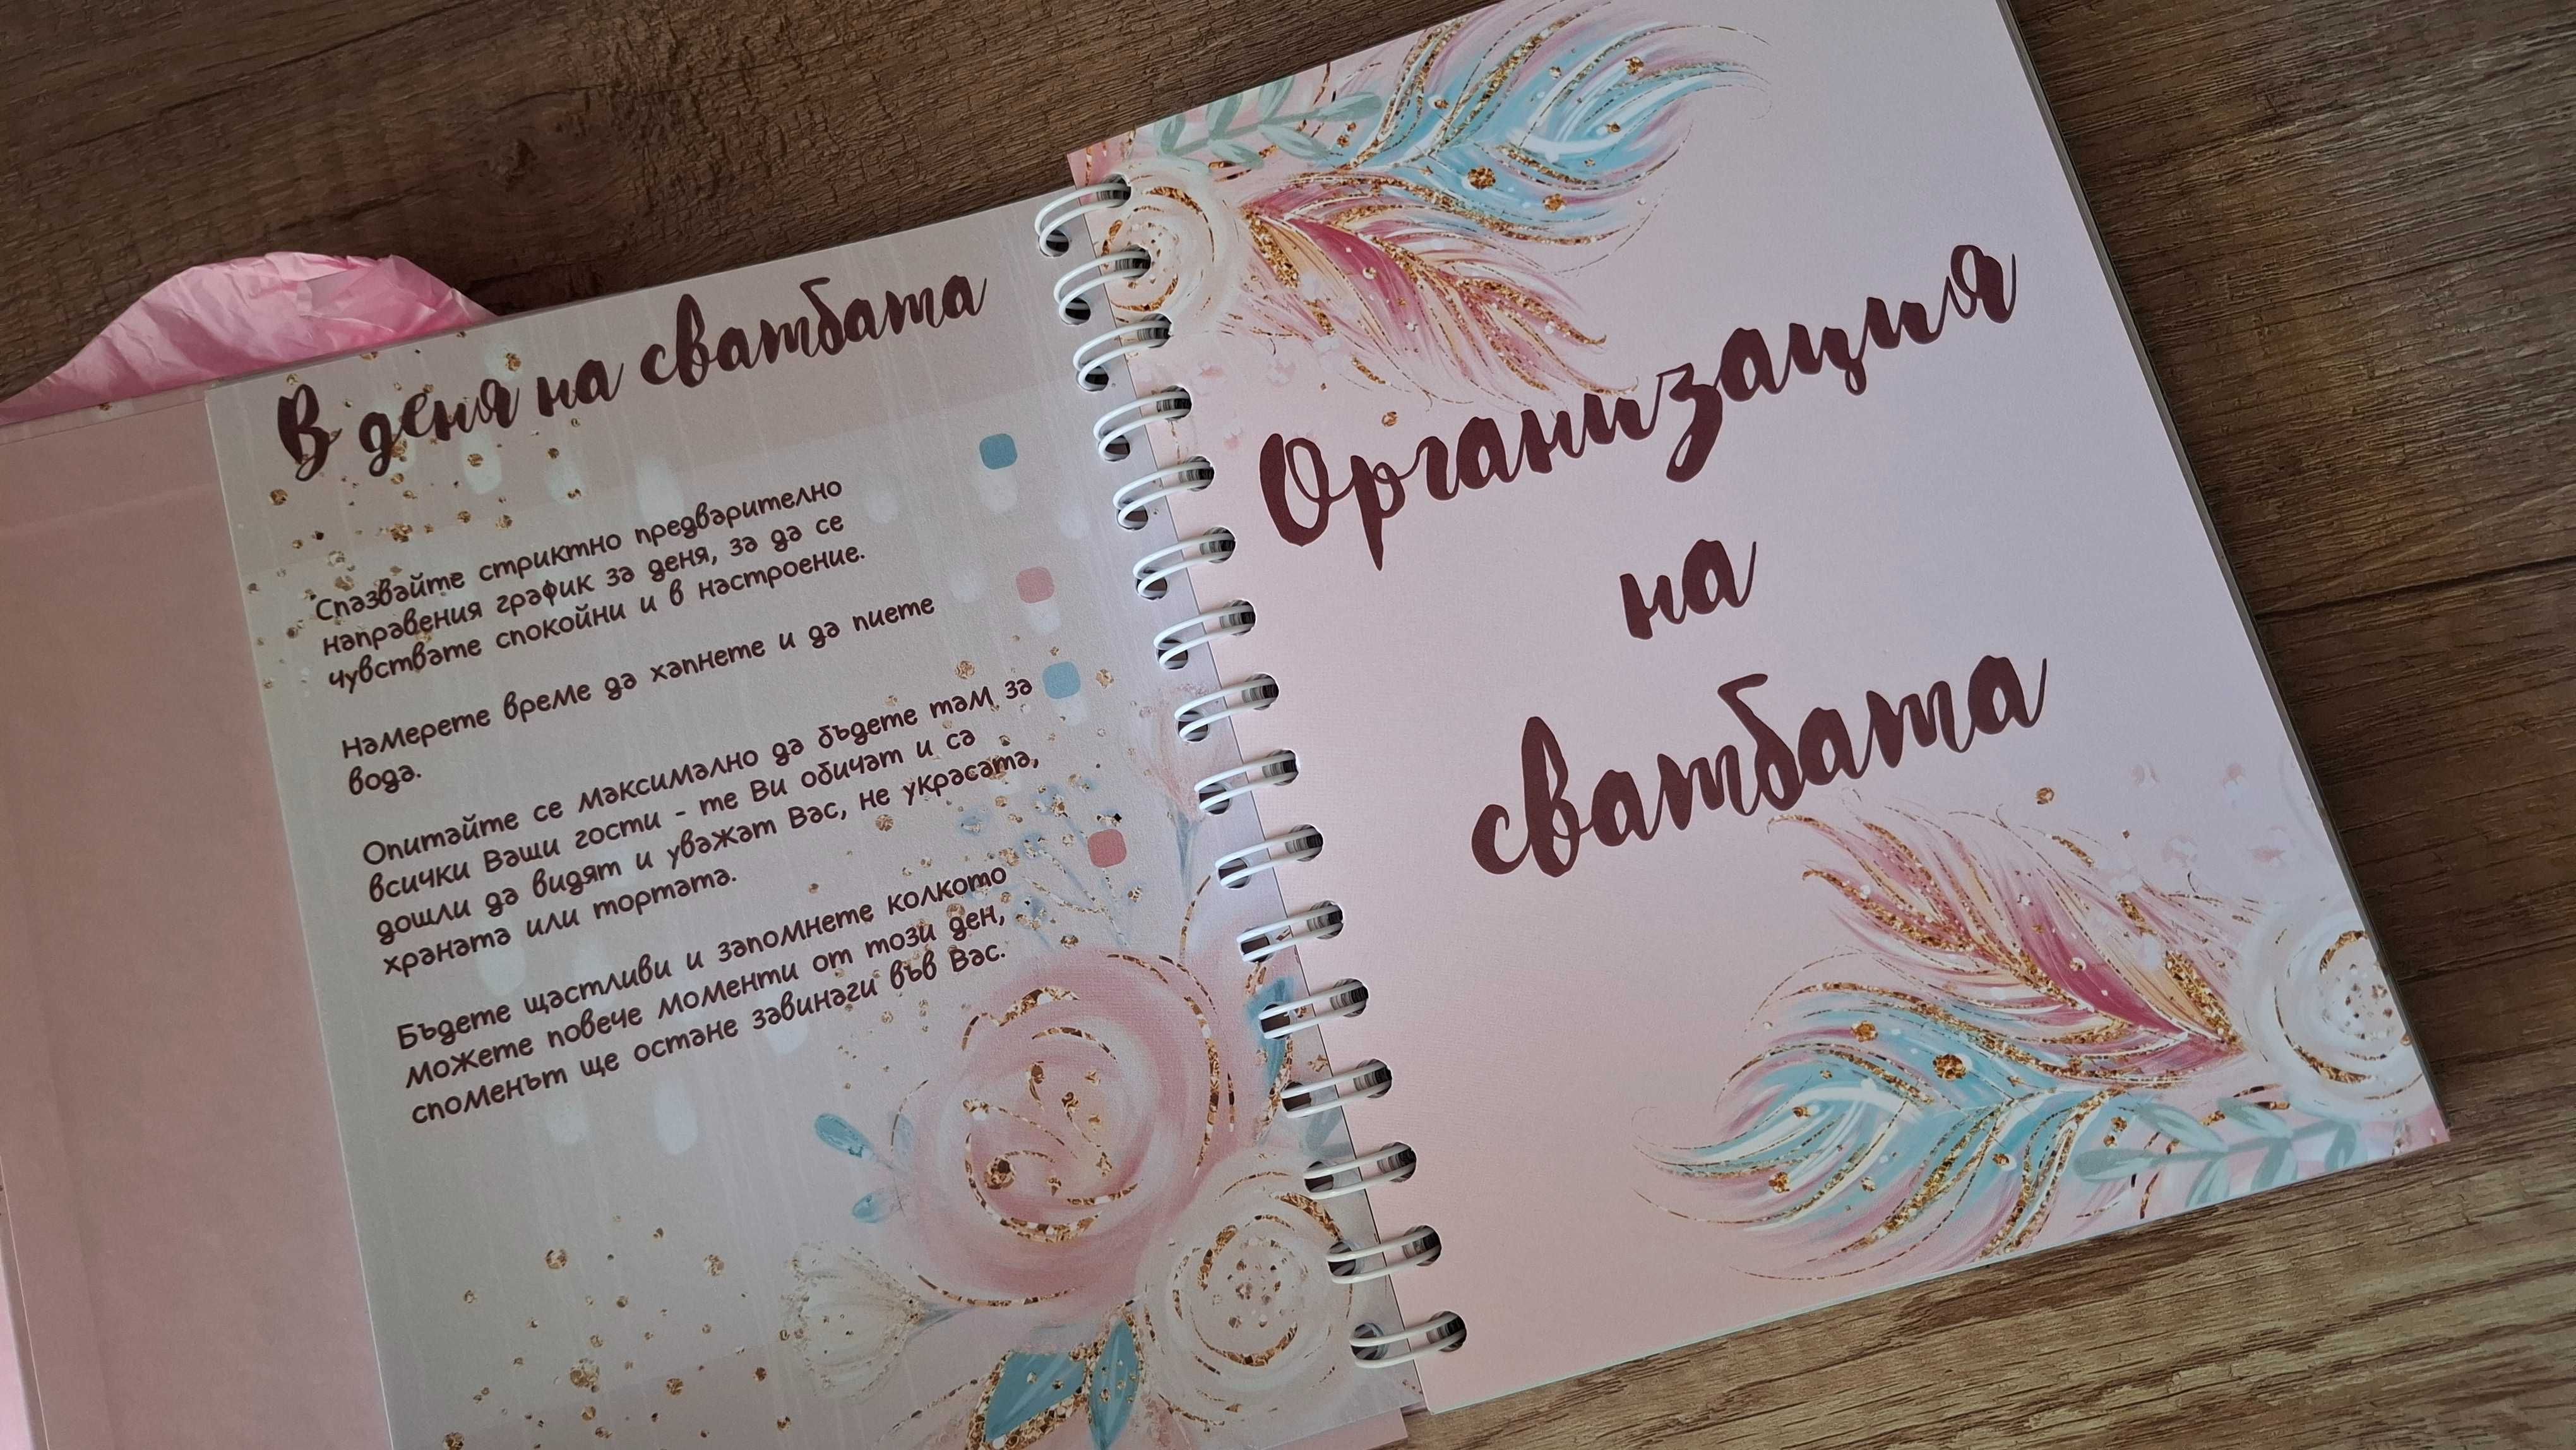 В деня на сватбата
Спазвайте стриктно предварително
направения график за деня, за да се
чувствате спокойни и в настроение.
Намерете време да хапнете и да пиете
вода.
Опитайте се максимално да бъдете там за
всички Ваши гости - те Ви обичат и са
дошли да видят и уважат Вас, не украсата,
храната или тортата.
Бъдете щастливи и запомнете колкото
можете повече моменти от този ден,
споменът ще остане завинаги във Вас.
Организация
на
сватбата